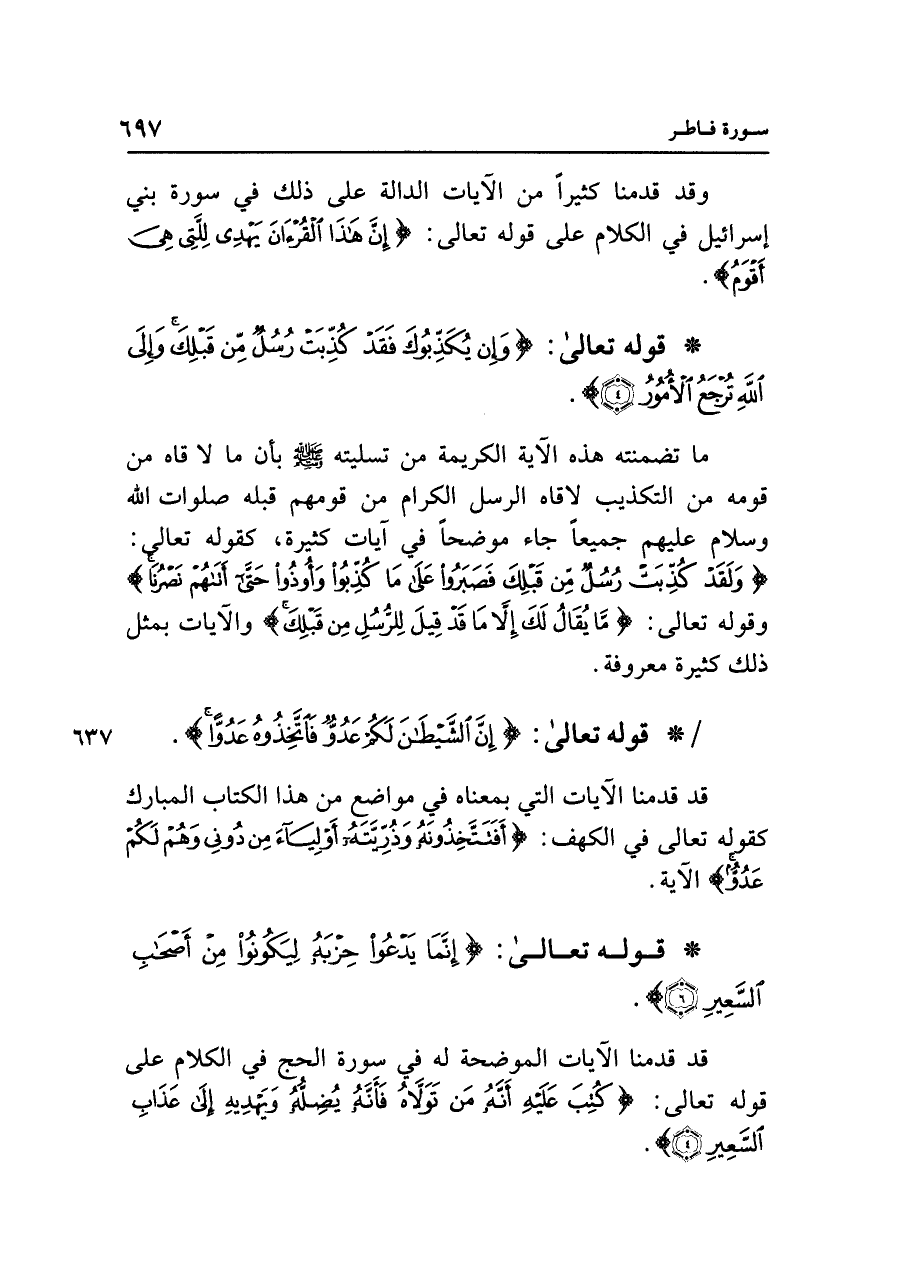 سورة فاطر ٦٩٧
وقد قدمنا كثيراً من الآيات الدالة على ذلك في سورة بني
إسرائيل في الكلام على قوله تعالى: ﴿ إِنَّ هَٰذَا ٱلْقُرْءَانَ يَهْدِى لِلَّتِى هِىَ
أَقْوَمُ﴾ .
* قوله تعالىٰ: ﴿ وَإِن يُكَذِّبُوكَ فَقَدْ كُذِّبَتْ رُسُلٌ مِّن قَبْلِكَ ۚ وَإِلَى
ٱللَّهِ تُرْجَعُ ٱلْأُمُورُ ٤﴾ .
ما تضمنته هذه الآية الكريمة من تسليته ﷺ بأن ما لا قاه من
قومه من التكذيب لاقاه الرسل الكرام من قومهم قبله صلوات الله
وسلام عليهم جميعاً جاء موضحاً في آيات كثيرة، كقوله تعالى:
﴿ وَلَقَدْ كُذِّبَتْ رُسُلٌ مِّن قَبْلِكَ فَصَبَرُوا۟ عَلَىٰ مَا كُذِّبُوا۟ وَأُوذُوا۟ حَتَّىٰٓ أَتَىٰهُمْ نَصْرُنَا ۚ﴾
وقوله تعالى: ﴿ مَّا يُقَالُ لَكَ إِلَّا مَا قَدْ قِيلَ لِلرُّسُلِ مِن قَبْلِكَ ۚ﴾ والآيات بمثل
ذلك كثيرة معروفة.
/ * قوله تعالىٰ: ﴿ إِنَّ ٱلشَّيْطَٰنَ لَكُمْ عَدُوٌّ فَٱتَّخِذُوهُ عَدُوًّا ۚ﴾ . ٦٣٧
قد قدمنا الآيات التي بمعناه في مواضع من هذا الكتاب المبارك
كقوله تعالى في الكهف: ﴿ أَفَتَتَّخِذُونَهُۥ وَذُرِّيَّتَهُۥٓ أَوْلِيَآءَ مِن دُونِى وَهُمْ لَكُمْ
عَدُوٌّۢ ۚ﴾ الآية.
* قوله تعالىٰ: ﴿ إِنَّمَا يَدْعُوا۟ حِزْبَهُۥ لِيَكُونُوا۟ مِنْ أَصْحَٰبِ
ٱلسَّعِيرِ ٦﴾ .
قد قدمنا الآيات الموضحة له في سورة الحج في الكلام على
قوله تعالى: ﴿ كُتِبَ عَلَيْهِ أَنَّهُۥ مَن تَوَلَّاهُ فَأَنَّهُۥ يُضِلُّهُۥ وَيَهْدِيهِ إِلَىٰ عَذَابِ
ٱلسَّعِيرِ ٤﴾ .